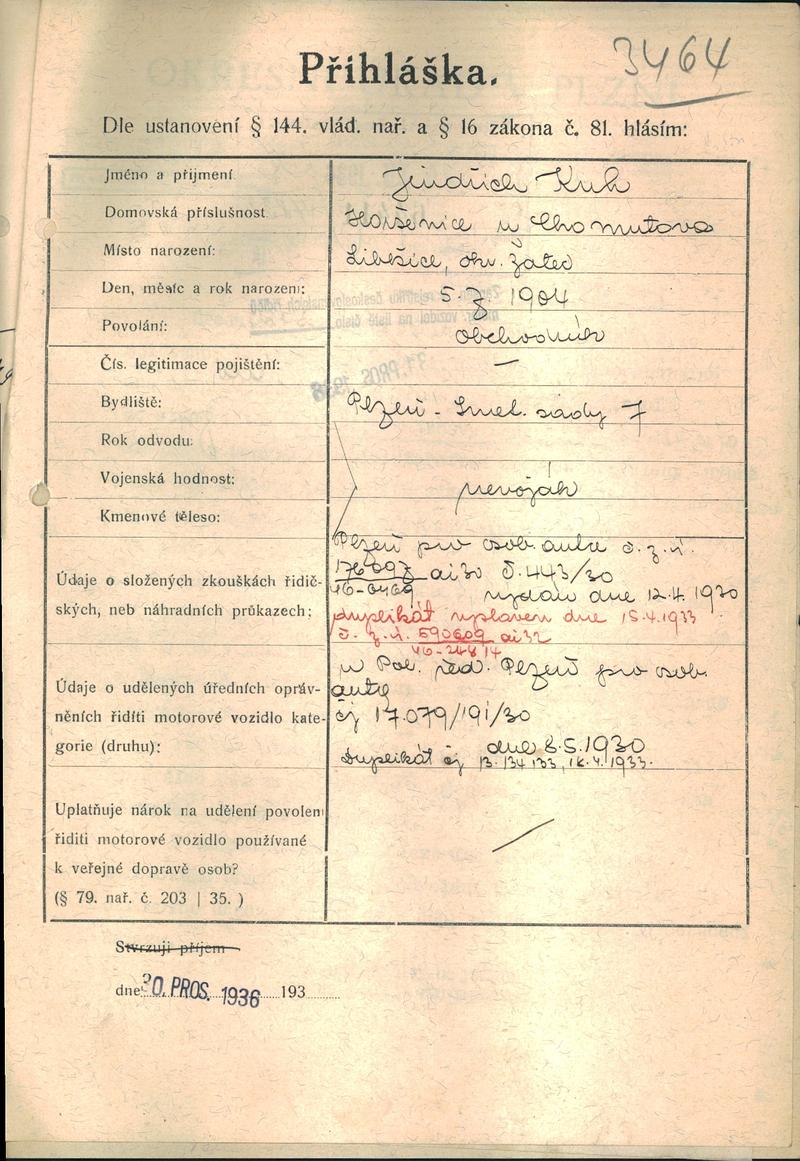 3464
Přihláška.
Dle ustanovení § 144. vlád. nař. a § 16 zákona č. 81. hlásím:
Jméno a přijmení
Jindřich Kuh
Domovská příslušnost
u Chomutova
Místo narození:
Liběšice, okr. Žatec
Den, měsíc a rok narození:
5. 7. 1904
Povolání:
obchodník
Čís. legitimace pojištění:
—
Bydliště:
Plzeň - Smet. sady 7
Rok odvodu:
Vojenská hodnost:
nevoják
Kmenové těleso:
Údaje o složených zkouškách řidič-
ských, neb náhradních průkazech:
Plzeň pro osob. auta
č. 443/30
vydán dne 12.4. 1930
duplikát vystaven dne 15.4.1933
590609
Údaje o udělených úředních opráv-
něních řiditi motorové vozidlo kate-
gorie (druhu):
u Pol. řed. Plzeň pro osob.
auta
čj 17.079/191/30
dne 8.5.1930
Duplikát čj
Uplatňuje nárok na udělení povolení
řiditi motorové vozidlo používané
k veřejné dopravě osob?
(§ 79. nař. č. 203 | 35. )
Stvrzuji příjem
dne 20. PROS. 1936 193